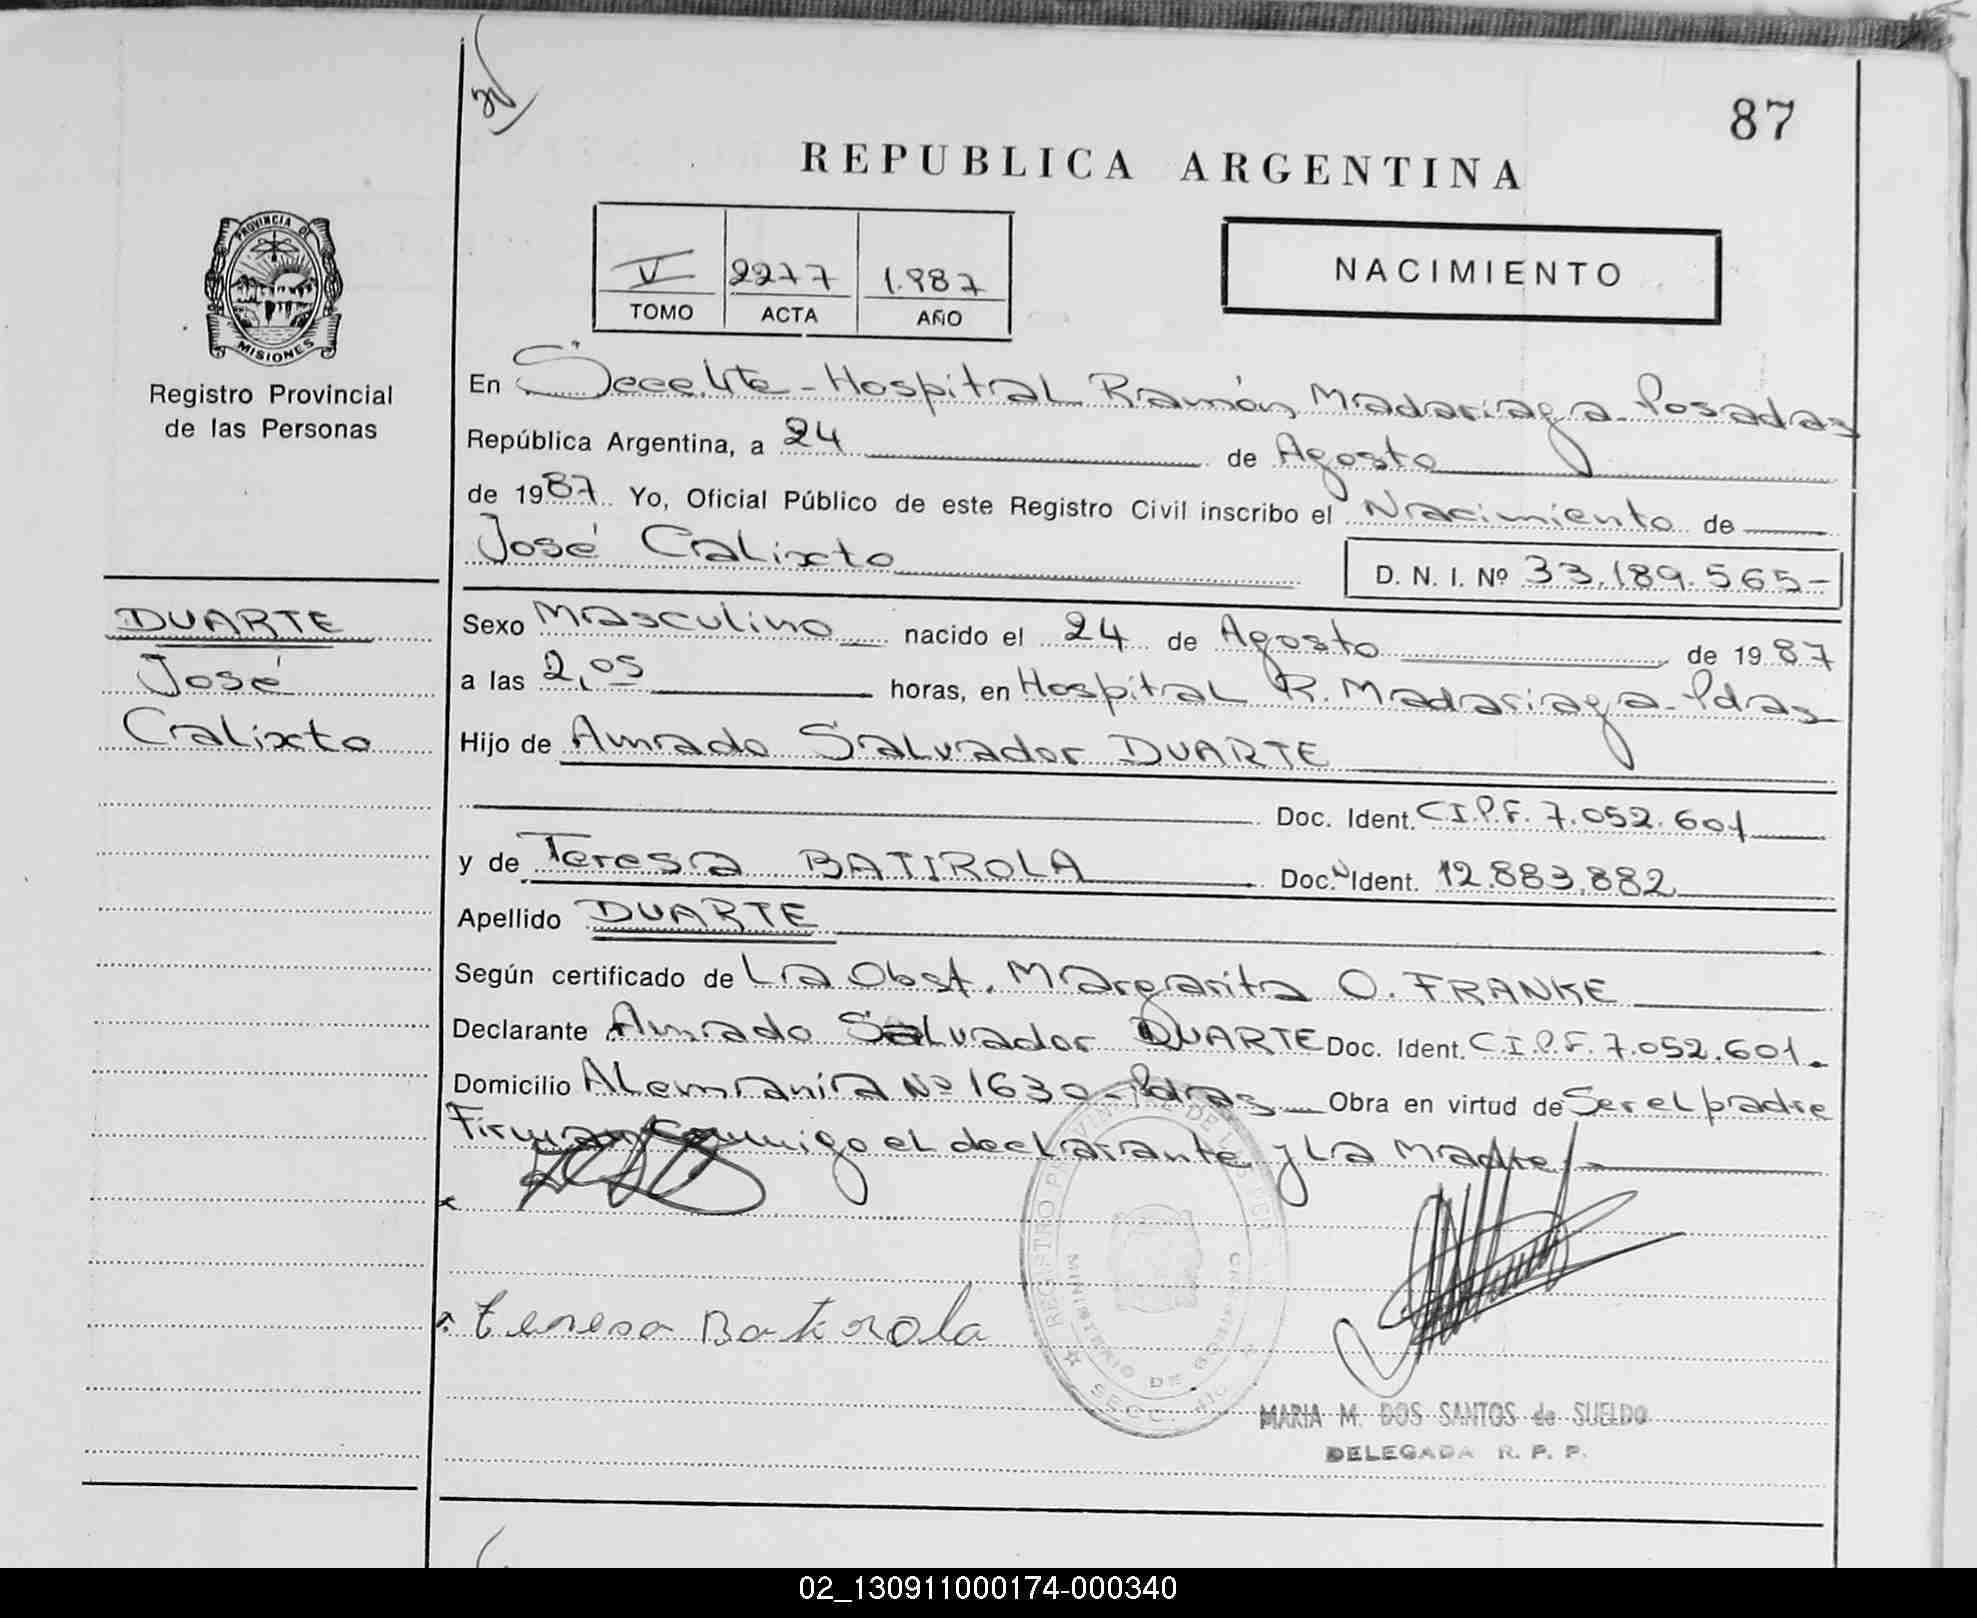 87
REPUBLICA ARGENTINA
V 2277 1.987
TOMO ACTA AÑO
NACIMIENTO
PROVINCIA DE
MISIONES
Registro Provincial
de las Personas
DUARTE
José
Calixto
En Hospital Ramón Madariaga - Posadas
República Argentina, a 24 de Agosto
de 1987 Yo, Oficial Público de este Registro Civil inscribo el Nacimiento de
José Calixto D. N. I. Nº 33.189.565-
Sexo Masculino nacido el 24 de Agosto de 1987
a las 2,05 horas, en Hospital R. Madariaga - Pdas
Hijo de Amado Salvador DUARTE
Doc. Ident. C.I.P.F. 7.052.601
y de Teresa BATIROLA Doc. Ident. 12.883.882
Apellido DUARTE
Según certificado de La Obst. Margarita O. FRANKE
Declarante Amado Salvador DUARTE Doc. Ident. C.I.P.F. 7.052.601.
Domicilio Alemania Nº 1630 - Pdas Obra en virtud de Ser el padre
Firman conmigo el declarante y La Madre.-
teresa Batirola
REGISTRO PROVINCIAL DE LAS
MINISTERIO DE GOBIERNO
SECC.
MARIA M. DOS SANTOS de SUELDO
DELEGADA R. P. P.
02_130911000174-000340